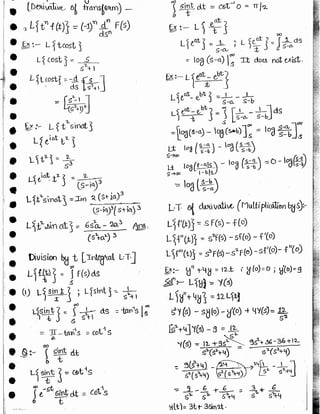 (Derivative of transform) —
L{tⁿ f(t)} = (-1)ⁿ dⁿ/dsⁿ F(s)
Ex:- L{tcost}
L{cost} = s/(s²+1)
L{tcost} = -d/ds [s/(s²+1)]
= [(s²-1)/(s²+1)²]
Ex:- L{t² sinat}
L{eiat t²}
L{t²} = 2/s³
L{eiat t²} = 2/(s-ia)³
L{t²sinat} = Im 2(s+ia)³/((s-ia)³(s+ia)³)
L{t²sin at} = (6s²a - 2a³)/(s²+a²)³ Ans.
Division by t [Integral L.T.]
L{f(t)/t} = ∫ F(s)ds
(1) L{sint/t} ; L{sint} = 1/(s²+1)
L{sint/t} = ∫ 1/(s²+1) ds = tan⁻¹s|
= π/2 - tan⁻¹s = cot⁻¹s
Q:- ∫ sint/t dt
L{sint/t} = cot⁻¹s
∫ e⁻ˢᵗ sint/t dt = cot⁻¹s
∫ sint/t dt = cot⁻¹0 = π/2
Ex:- L{eᵃᵗ/t}
L{eᵃᵗ} = 1/(s-a) ; L{eᵃᵗ/t} = ∫ 1/(s-a) ds
= log(s-a)|s It does not exist.
Ex:- L{(eᵃᵗ-eᵇᵗ)/t}
L{eᵃᵗ-eᵇᵗ} = 1/(s-a) - 1/(s-b)
L{(eᵃᵗ-eᵇᵗ)/t} = ∫ [1/(s-a) - 1/(s-b)]ds
= [log(s-a) - log(s-b)]s = log (s-a)/(s-b)]s
Lt s→∞ log((s-a)/(s-b)) - log((s-a)/(s-b))
Lt s→∞ log((1-a/s)/(1-b/s)) - log((s-a)/(s-b)) = 0 - log((s-a)/(s-b))
= log((s-b)/(s-a))
L.T of derivative (Multiplication by s):-
L{f'(t)} = sF(s) - f(0)
L{f"(t)} = s²F(s) - sf(0) - f'(0)
L{f'''(t)} = s³F(s) - s²F(0) - sf'(0) - f"(0)
Ex:- y" + 4y = 12t ; y(0)=0 ; y'(0)=9
Solⁿ:- L{y} = Y(s)
L{y"+4y} = 12 L{t}
s²Y(s) - sy(0) - y'(0) + 4Y(s) = 12/s²
[s²+4]Y(s) - 9 = 12/s²
Y(s) = (12+9s²)/(s²(s²+4)) = (9s²+36-36+12)/(s²(s²+4))
= 9(s²+4)/(s²(s²+4)) - 24/(s²(s²+4)) → 24/4[1/s² - 1/(s²+4)]
= 9/s² - 6/s² + 6/(s²+4) = 3/s² + 6/(s²+4)
y(t) = 3t + 3sin2t.